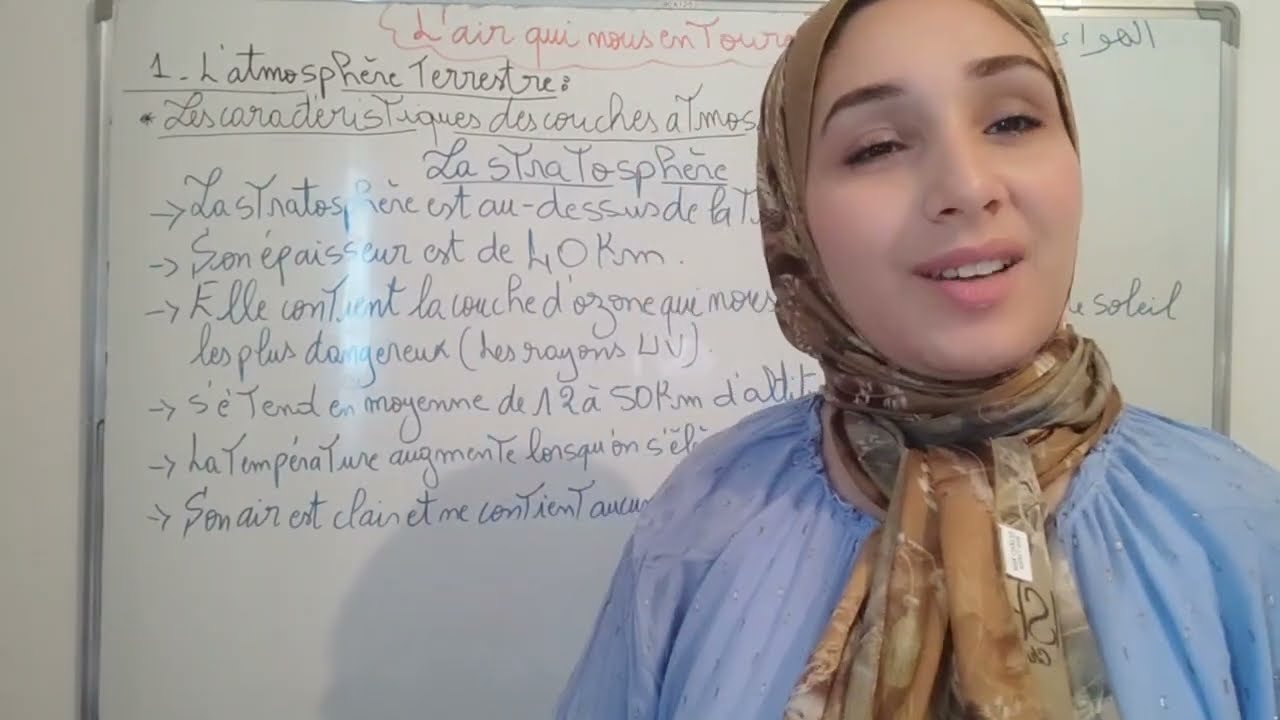 L'air qui nous entoure الهواء
1 - L'atmosphère Terrestre :
* Les caractéristiques des couches atmos
La stratosphère
→ La stratosphère est au-dessus de la T
→ Son épaisseur est de 40 Km.
→ Elle contient la couche d'ozone qui nous soleil
les plus dangereux (Les rayons UV).
→ s'étend en moyenne de 12 à 50 Km d'altitu
→ La Température augmente lorsqu'on s'élè
→ Son air est clair et ne contient aucun